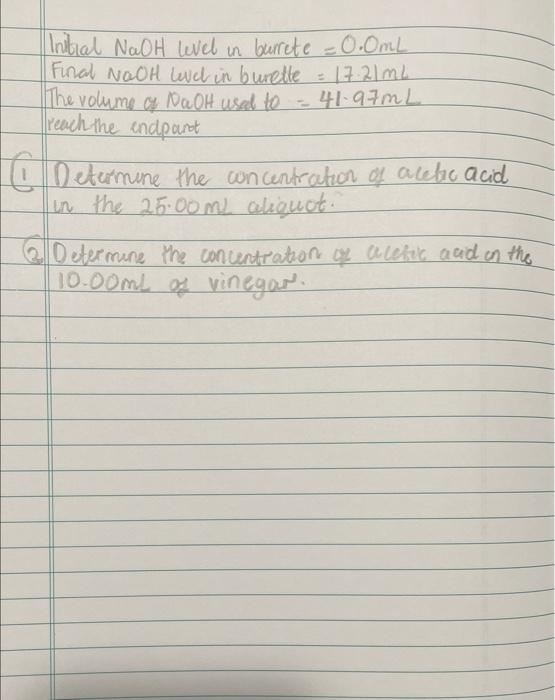 Initial NaOH level in burrete = 0.0mL
Final NaOH level in burette = 17.21mL
The volume of NaOH used to = 41.97mL
reach the endpoint
① Determine the concentration of acetic acid
in the 25.00 mL aliquot.
② Determine the concentration of acetic acid in the
10.00mL of vinegar.